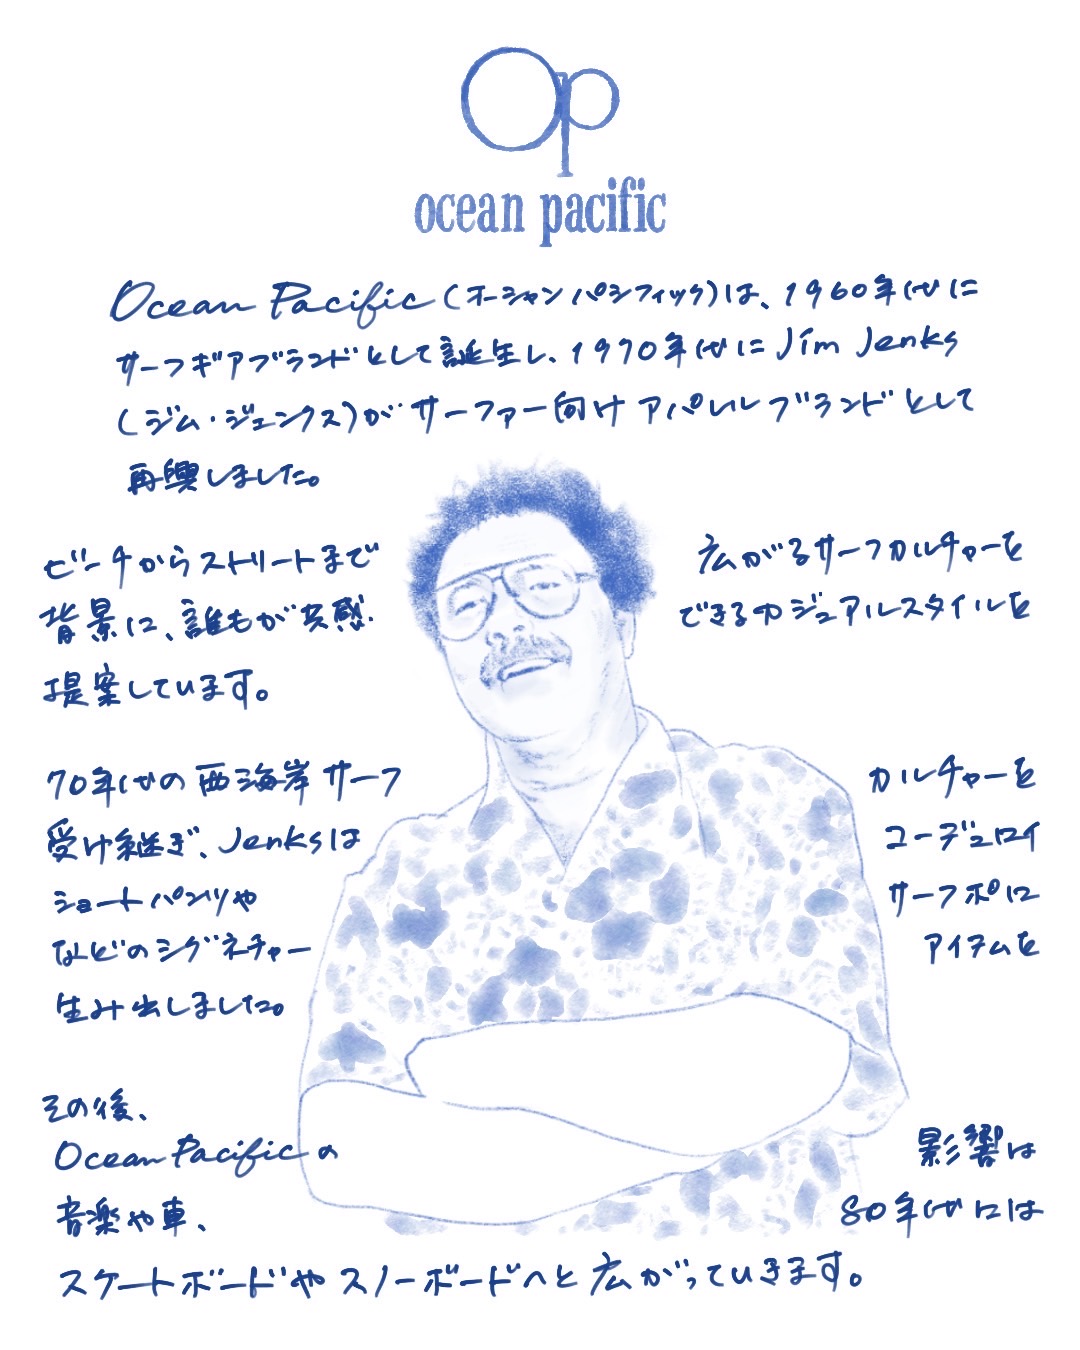 Op
ocean pacific
Ocean Pacific (オーシャンパシフィック)は、1960年代に
サーフギアブランドとして誕生し、1970年代にJim Jenks
(ジム・ジェンクス)がサーファー向けアパレルブランドとして
再興しました。
ビーチからストリートまで 広がるサーフカルチャーを
背景に、誰もが共感 できるカジュアルスタイルを
提案しています。
70年代の西海岸サーフ カルチャーを
受け継ぎ、Jenksは コーデュロイ
ショートパンツや サーフポロに
などのシグネチャー アイテムを
生み出しました。
その後、
Ocean Pacificの 影響は
音楽や車、 80年代には
スケートボードやスノーボードへと広がっていきます。